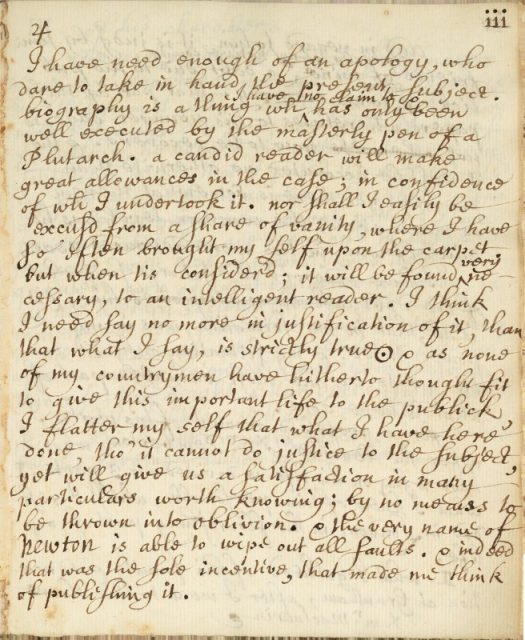 4 iii
I have need enough of an apology, who
dare to take in hand the present subject.
I have no claim to
biography is a thing wh has only been
well executed by the masterly pen of a
Plutarch. a candid reader will make
great allowances in the case; in confidence
of wh I undertook it. nor shall I easily be
excusd from a share of vanity, where I have
so often brought my self upon the carpet
but when tis considerd; it will be found very ne
cessary, to an intelligent reader. I think
I need say no more in justification of it, than
that what I say, is strictly true ⊙ & as none
of my countrymen have hitherto thought fit
to give this important life to the publick,
I flatter my self that what I have here
done, tho' it cannot do justice to the subject,
yet will give us a satisfaction in many
particulars worth knowing; by no means to
be thrown into oblivion. & the very name of
Newton is able to wipe out all faults. & indeed
that was the sole incentive, that made me think
of publishing it.